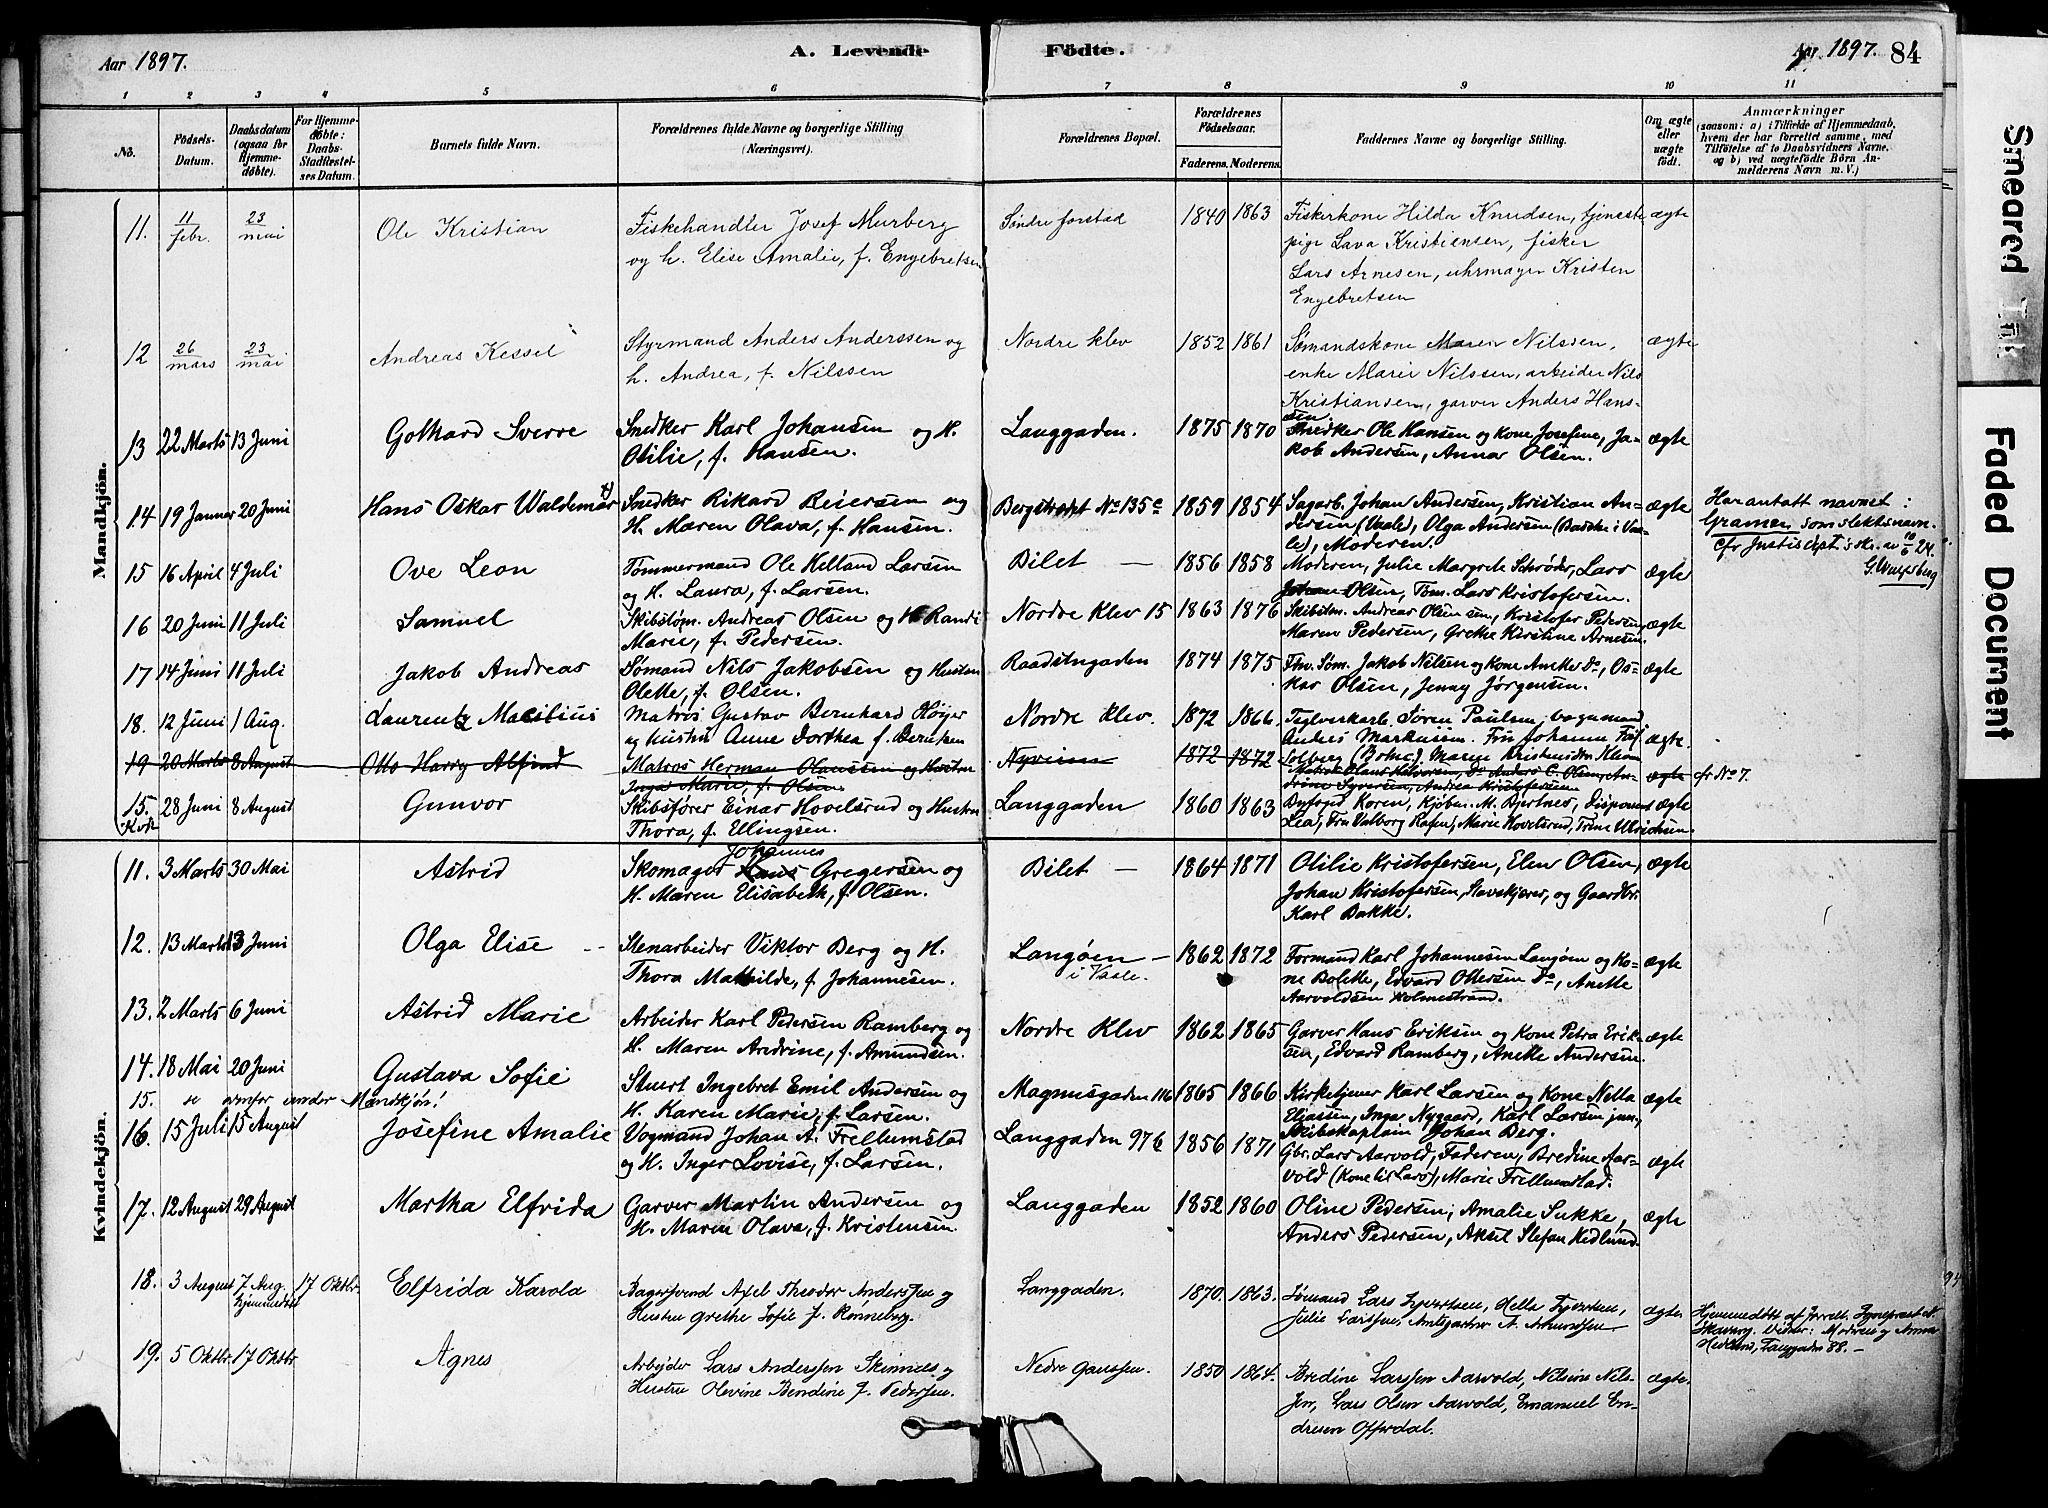 Aar 1897. A. Levende Födte. Aar 1897. 84
1 2 3 4 5 6 7 8 9 10 11
No.
Födsels-Datum.
Daabsdatum (ogsaa for Hjemmedøbte).
For Hjemmedøbte: Daabs-Stadfæstelses Datum.
Barnets fulde Navn.
Forældrenes fulde Navne og borgerlige Stilling (Næringsvei).
Forældrenes Bopæl.
Forældrenes Födselsaar.
Faderens. Moderens.
Faddernes Navne og borgerlige Stilling.
Om ægte eller uægte födt.
Anmærkninger
(saasom: a) i Tilfælde af Hjemmedaab,
hvem der har forrettet samme, med
Tilföielse af to Daabsvidners Navne,
og b) ved uægtefödte Börn An-
melderens Navn m. V.)
Mandkjön.
11. 11/febr. 23/mai Ole Kristian Fiskehandler Josef Murberg Søndre forstad 1840 1863 Fiskerkone Hilda Knudsen, tjeneste- ægte
og h. Elise Amalie, f. Engebretsen pige Lava Kristiensen, fisker
Lars Arnesen, uhrmager Kristen
Engebretsen
12 26/mars 23/mai Andreas Kessel Styrmand Anders Anderssen og Nordre Klev 1852 1861 Sømandskone Maren Nilssen, ægte
h. Andrea, f. Nilssen enke Marie Nilssen, arbeider Nils
Kristiansen, garver Anders Hans-
sen.
13 22 Marts 13 Juni Gothard Sverre Snedker Karl Johansen og H. Langgaden. 1875 1870 Snedker Ole Hansen og Kone Josefine, Ja- ægte
Otilie, f. Hansen. kob Andersen, Anna Olsen.
14 19 Januar 20 Juni Hans Oskar Waldemar Snedker Rikard Reiersen og Bergstrædet No 135c 1859 1854 Sagarb. Johan Andersen, Kristian An- ægte Har antatt navnet:
H. Maren Olava, f. Hansen. dersen (Vaale), Olga Andersen (Bakke i Vaa- Gramer, som slektsnavn.
le), Moderen. cfr Justisdept's skr. av 10/6 24.
G. Wulfsberg
15 16 April 4 Juli Ove Leon Tømmermand Ole Helland Larsen Bilet — 1856 1858 Moderen, Julie Margrete Schrøder, Lars ægte
og H. Laura, f. Larsen. Johan Olsen, Tøm. Lars Kristofersen.
16 20 Juni 11 Juli Samuel Skibstøm. Andreas Olsen og H. Randi Nordre Klev 15 1863 1876 Skibstøm. Andreas Olsen sen, Kristofer Pedersen, ægte
Marie, f. Pedersen. Maren Pedersen, Grethe Kirstine Arnesen.
17 14 Juni 11 Juli Jakob Andreas Sømand Nils Jakobsen og Hustru Raadstugaden 1874 1875 Fhv. Søm. Jakob Nilsen og Kone Anethe Do, Os- ægte
Olette, f. Olsen. kar Olsen, Jenny Jørgensen.
18. 12 Juni 1 Aug. Laurentz Macilius Matros Gustav Bernhard Höyer Nordre Klev. 1872 1866 Teglverksarb. Sören Paulsen, vognmand ægte.
og Hustru Anne Dorthea f. Berntsen Anders Markussen. Fru Johanne
Solberg (Botne), Maren Kristensdtr. Klem
19 20 Marts 8 August Otto Harry Alfred Matros Herman Olaussen og Hustru Nyveien 1872 1872 Matros Olaus Halvorsen, Do Anders C. Olsen, An- ægte cfr No 7.
Inga Marie, f. Olsen drine Syversen, Andrea Kristofersen
15. Kvk 28 Juni 8 August Gunvor Skibsfører Einar Hovelsrud og Hustru Langgaden 1860 1863 Byfogd Koren, Kjøbm. M. Bjertnes, Disponent ægte
Thora, f. Ellingsen. Lea, Fru Valborg Rafen, Marie Hovelsrud, Trine Ulrichsen.
Kvindekjön.
11. 3 Marts 30 Mai Astrid Skomager Hans Johannes Gregersen og Bilet — 1864 1871 Otilie Kristofersen, Elen Olsen, ægte
H. Maren Elisabeth, f. Olsen. Johan Kristofersen, Stavskjærer, og Gaardbr.
Karl Bakke.
12. 13 Marts 13 Juni Olga Elise Stenarbeider Viktor Berg og H. Langøen — i Vaale. 1862 1872 Formand Karl Johannesen Langøen og Ko- ægte
Thora Mathilde, f. Johannesen. ne Bolette, Edvard Ottersen Do, Anette
Aarvoldsen Holmestrand.
13. 2 Marts 6 Juni Astrid Marie Arbeider Karl Pedersen Ramberg og Nordre Klev 1862 1865 Garver Hans Eriksen og Kone Petra Erik- ægte
H. Maren Andrine, f. Amundsen. sen, Edvard Ramberg, Anette Andersen.
14. 18 Mai 20 Juni Gustava Sofie Stuert Ingebret Emil Andersen og Magnusgaden 116 1865 1866 Kirketjener Karl Larsen og Kone Nella ægte
H. Karen Marie, f. Larsen. Eliassen, Inga Nygaard, Karl Larsen jun.,
Skibskaptein Johan Berg.
15. se ovenfor under Mandkjøn!
16. 15 Juli 15 August Josefine Amalie Vogmand Johan A. Frellumstad Langgaden 976 1856 1871 Gbr. Lars Aarvold, Faderen, Bredine Aar- ægte
og H. Inger Lovise, f. Larsen. vold (Kone til Lars), Marie Frellumstad.
17. 12 August 29 August Martha Elfrida Garver Martin Andersen og Langgaden 1852 1860 Oline Pedersen, Amalie Sukke, ægte
H. Maren Olava, f. Kristensen Anders Pedersen, Aksel Stefan Hedlund.
18. 3 August 7 Aug. hjemmedøbt 17 Oktbr. Elfrida Karola Bagersvend Axel Theodor Anderssen og Langgaden. 1870. 1863. Sømand Lars Syvertsen, Hella Syvertsen, ægte. Hjemmedøbt af
Hustru Grethe Sofie f. Rønneberg. Julie Larssen, Amtsgartner A. Amundssen. Vidner: Moderen og Anna
Hedlund, Langgaden 88. —
19. 5 Oktbr. 17 Oktbr. Agnes Arbejder Lars Anderssen Skinnes og Nedre Gaussen. 1850 1864. Bredine Larssen Aarvold, Nilsine Nils- ægte.
Hustru Olevine Bendine f. Pedersen. sen, Lars Olsen Aarvold, Emanuel En-
dresen Offerdal.
Smeared Ink
Faded Document